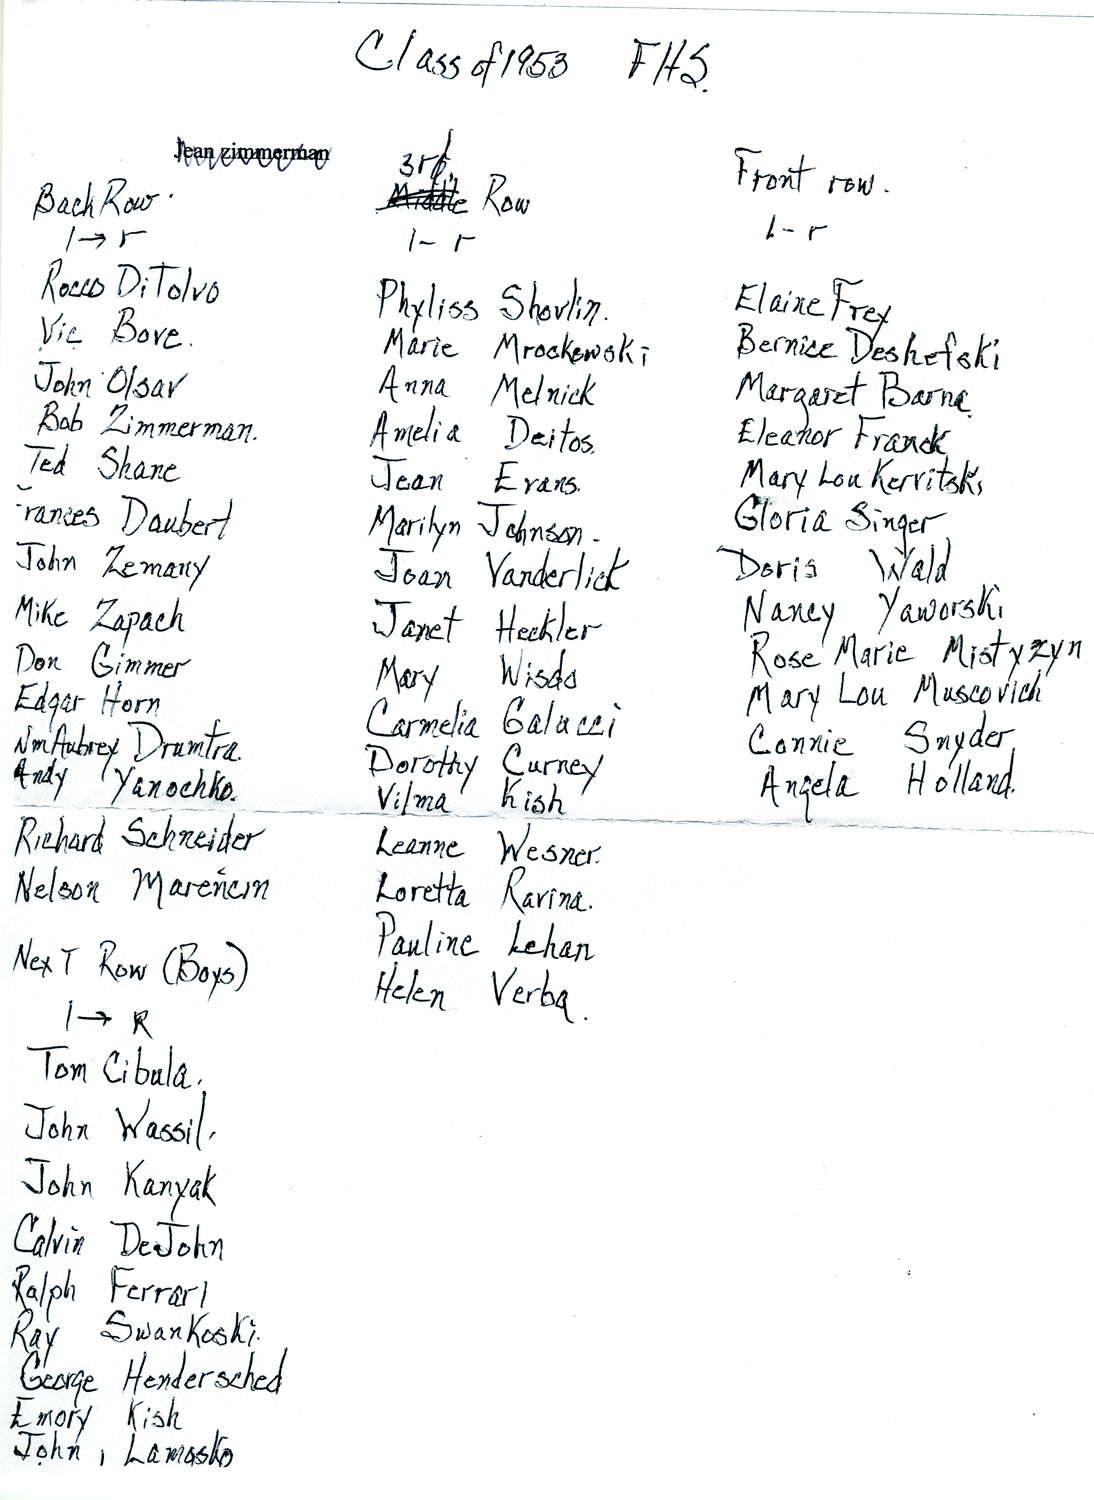 Class of 1953 FHS.
Jean zimmerman
Back Row.
l → r
Rocco DiTolvo
Vic Bove.
John Olsav
Bob Zimmerman.
Ted Shane
Frances Daubert
John Zemany
Mike Zapach
Don Gimmer
Edgar Horn
Wm Aubrey Drumtra.
Andy Yanochko.
Richard Schneider
Nelson Marencin
Next Row (Boys)
l → R
Tom Cibula.
John Wassil.
John Kanyak
Calvin DeJohn
Ralph Ferrari
Ray Swankoski.
George Hendersched
Emory Kish
John, Lamasko
3rd.
Middle Row
l - r
Phyliss Shovlin.
Marie Mrockowski
Anna Melnick
Amelia Deitos.
Jean Evans.
Marilyn Johnson.
Joan Vanderlick
Janet Heckler
Mary Wisdo
Carmelia Galucci
Dorothy Curney
Vilma Kish
Leanne Wesner.
Loretta Ravina.
Pauline Lehan
Helen Verba.
Front row.
l - r
Elaine Frey
Bernice Deshefski
Margaret Barna
Eleanor Franck
Mary Lou Kerritski
Gloria Singer
Doris Wald
Nancy Yaworski
Rose Marie Mistyzyn
Mary Lou Muscovich
Connie Snyder
Angela Holland.